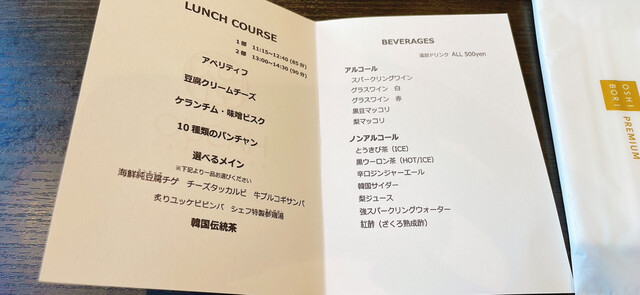 LUNCH COURSE
1部 11:15~12:40 (85分)
2部 13:00~14:30 (90分)
アペリティフ
豆腐クリームチーズ
ケランチム・味噌ビスク
10種類のバンチャン
選べるメイン
※下記より一品お選びください
海鮮純豆腐チゲ チーズタッカルビ 牛プルコギサンパ
炙りユッケビビンバ シェフ特製参鶏湯
韓国伝統茶
BEVERAGES
追加ドリンク ALL 500yen
アルコール
スパークリングワイン
グラスワイン 白
グラスワイン 赤
黒豆マッコリ
梨マッコリ
ノンアルコール
とうきび茶 (ICE)
黒ウーロン茶 (HOT/ICE)
辛口ジンジャーエール
韓国サイダー
梨ジュース
強スパークリングウォーター
紅酢 (ざくろ熟成酢)
OSHI
BORI
PREMIUM